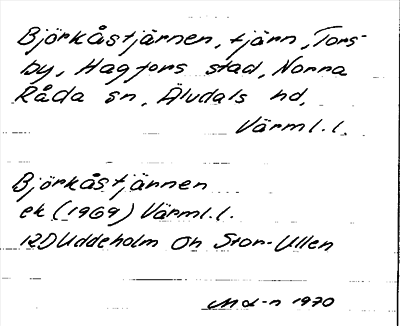 Björkåstjärnen, tjärn, Tors-
by, Hagfors stad, Norra
Råda sn, Älvdals hd,
Värml. l.
Björkåstjärnen
ek (1969) Värml. l.
12D Uddeholm 0h Stor-Ullen
1970